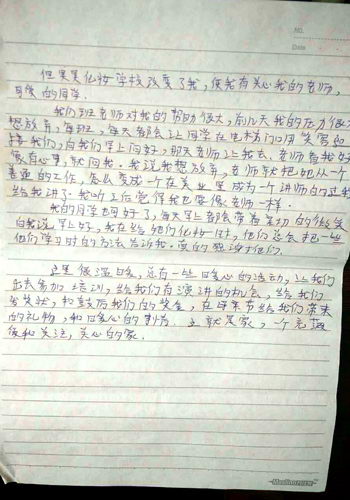 NO.
Date
但果果化妆学校改变了我,使我有关心我的老师,
的同学.
我们班老师对我的帮助很大,前几天我的压力很
想放弃,每班,每天都会让同学在电梯门口用笑容迎
接我们,向我们早上问好,那天老师让我去,老师看我好
像有心事,就问我。我说我想放弃,老师就把她从一个
普通的工作,怎么变成一个在美业里成为一个讲师的过
给我讲了我听了后觉得我也要像老师一样.
我的同学也对好了,每天早上都会带着亲切的微笑
向我说早上好,我在给他们化妆时,他们总会把一些
他们学习时的方法告诉我.真的很谢谢他们.
这里很温暖,还有一些暖心的活动,让我们
出去参加培训,给我们有演讲的机会,给我们
发奖状,和鼓励我们的奖金,在母亲节给我们带来
的礼物,和暖心的事情.这就是家,一个充满
爱和关注,关心的家.